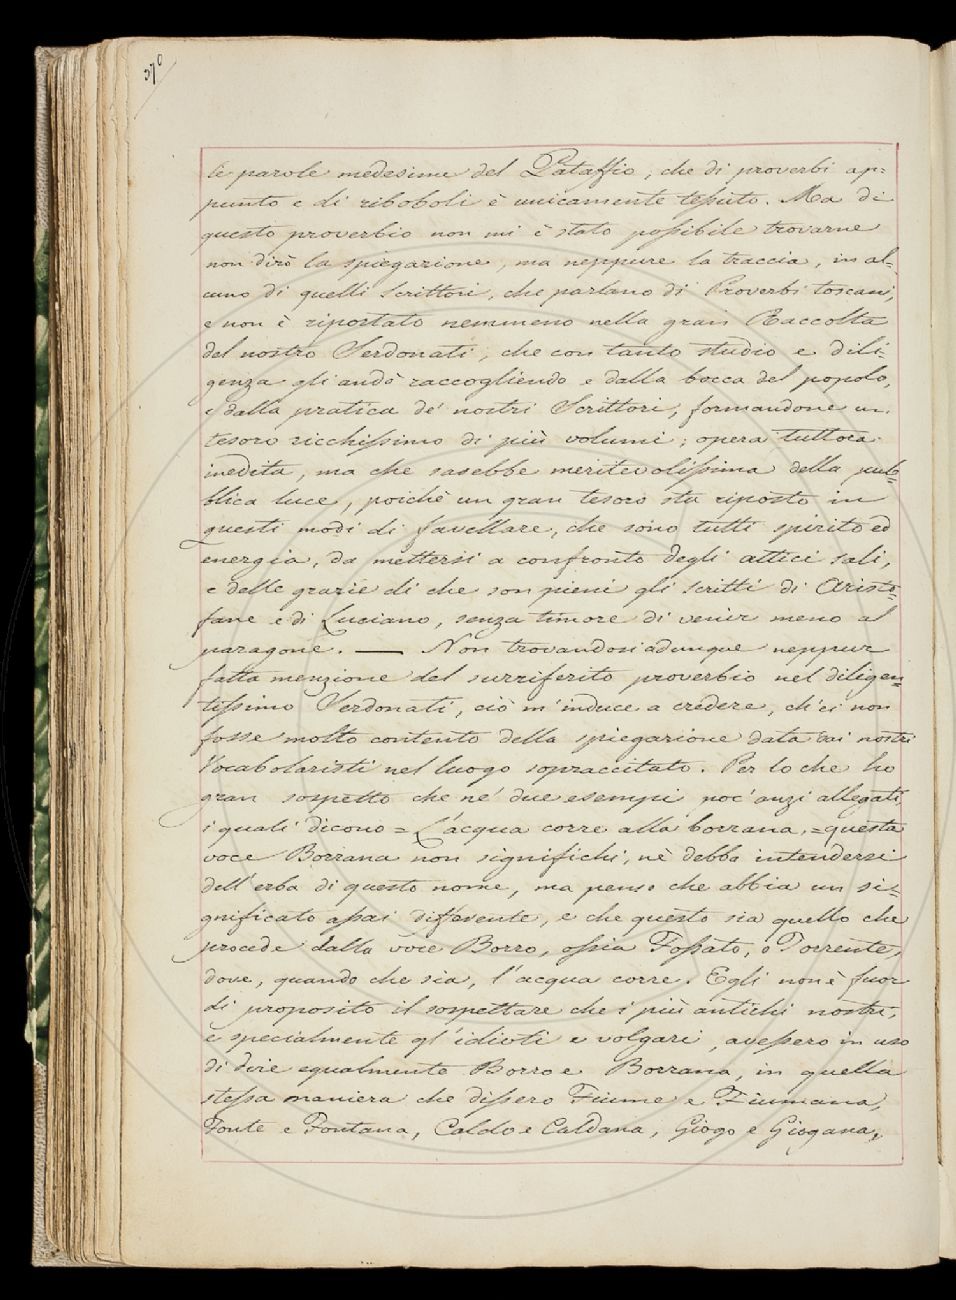 370
le parole medesime del Pataffio, che di proverbi ap=
punto e di riboboli è unicamente tessuto. Ma di
questo proverbio non mi è stato possibile trovarne
non dirò la spiegazione, ma neppure la traccia, in al=
cuno di quelli Scrittori, che parlano di Proverbi toscani,
e non è riportato nemmeno nella gran Raccolta
del nostro Serdonati, che con tanto studio e dili=
genza gli andò raccogliendo e dalla bocca del popolo,
e dalla pratica de' nostri Scrittori, formandone un
tesoro ricchissimo di più volumi; opera tuttora
inedita, ma che sarebbe meritevolissima della pub=
blica luce, poichè un gran tesoro sta riposto in
questi modi di favellare, che sono tutti spirito ed
energia, da mettersi a confronto degli attici sali,
e delle grazie di che son pieni gli scritti di Aristo=
fane e di Luciano, senza timore di venir meno al
paragone. — Non trovandosi adunque neppur
fatta menzione del surriferito proverbio nel diligen=
tissimo Serdonati, ciò m'induce a credere, ch'ei non
fosse molto contento della spiegazione data dai nostri
Vocabolaristi nel luogo sopraccitato. Per lo che ho
gran sospetto che ne' due esempi poc'anzi allegati,
i quali dicono = L'acqua corre alla borrana, = questa
voce Borrana non significhi, nè debba intendersi
dell'erba di questo nome, ma penso che abbia un si=
gnificato assai differente, e che questo sia quello che
procede dalla voce Borro, ossia Fossato, o Torrente,
dove, quando che sia, l'acqua corre. Egli non è fuor
di proposito il sospettare che i più antichi nostri,
e specialmente gl'idioti e volgari, avessero in uso
di dire egualmente Borro e Borrana, in quella
stessa maniera che dissero Fiume e Fiumana,
Fonte e Fontana, Caldo e Caldana, Giogo e Giogana,